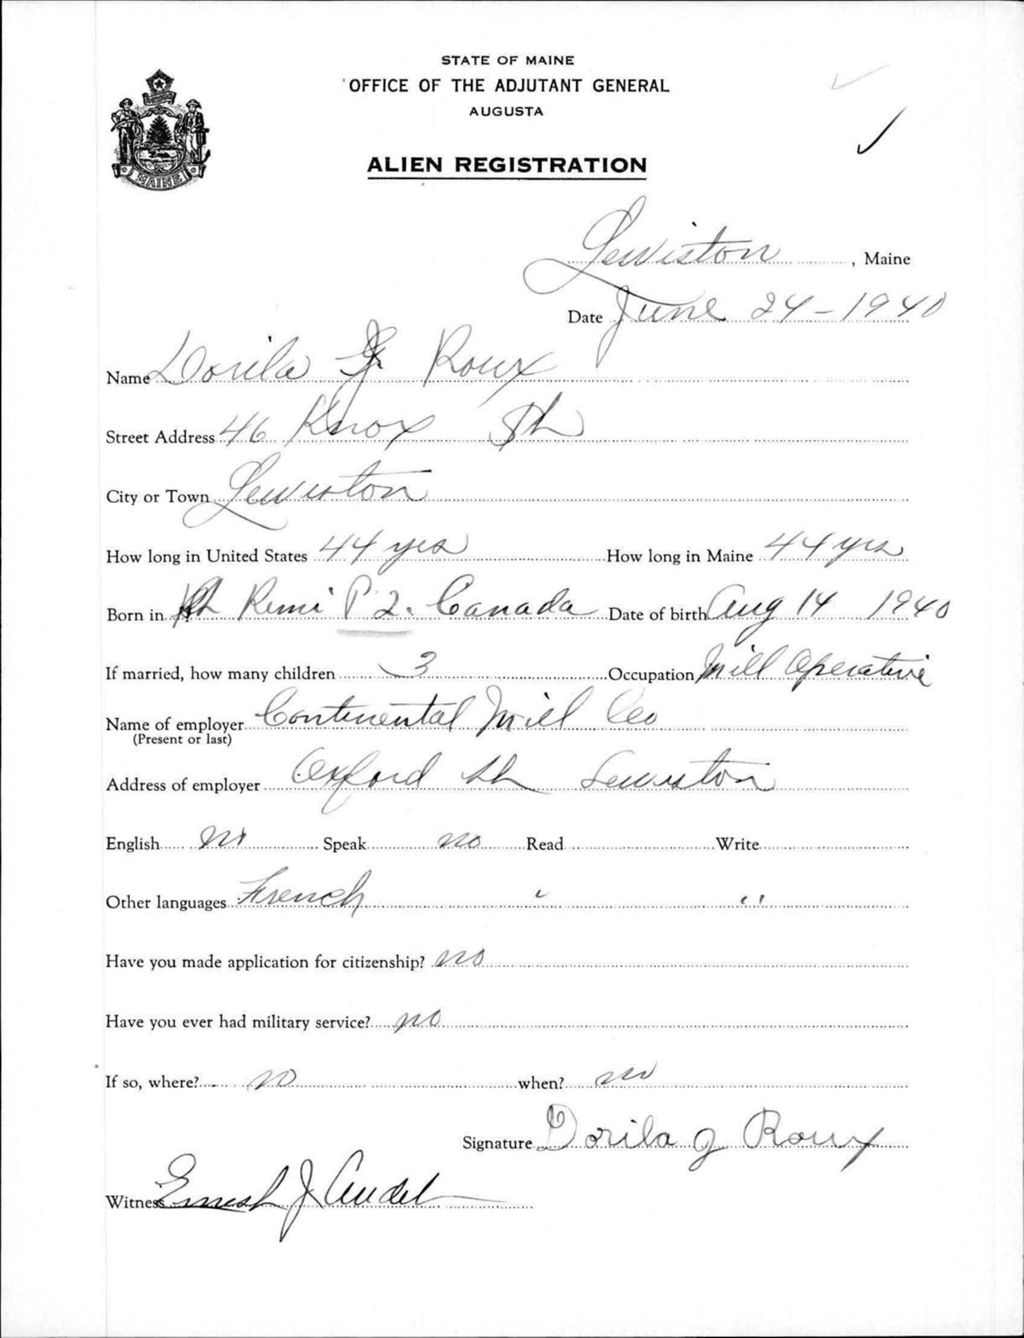 STATE OF MAINE
OFFICE OF THE ADJUTANT GENERAL
AUGUSTA
ALIEN REGISTRATION
MAINE
Lewiston, Maine
Date June 24-1940
Name Dorila J Roux
Street Address 46 Knox St
City or Town Lewiston
How long in United States 44 yrs How long in Maine 44 yrs
Born in St Remi P 2. Canada Date of birth Aug 14 1940
If married, how many children 3 Occupation Mill Operative
Name of employer Continental Mill Co
(Present or last)
Address of employer Oxford St Lewiston
English no Speak no Read Write
Other languages French " "
Have you made application for citizenship? no
Have you ever had military service? no
If so, where? no when? no
Signature Dorila J Roux
Witness Ernest J